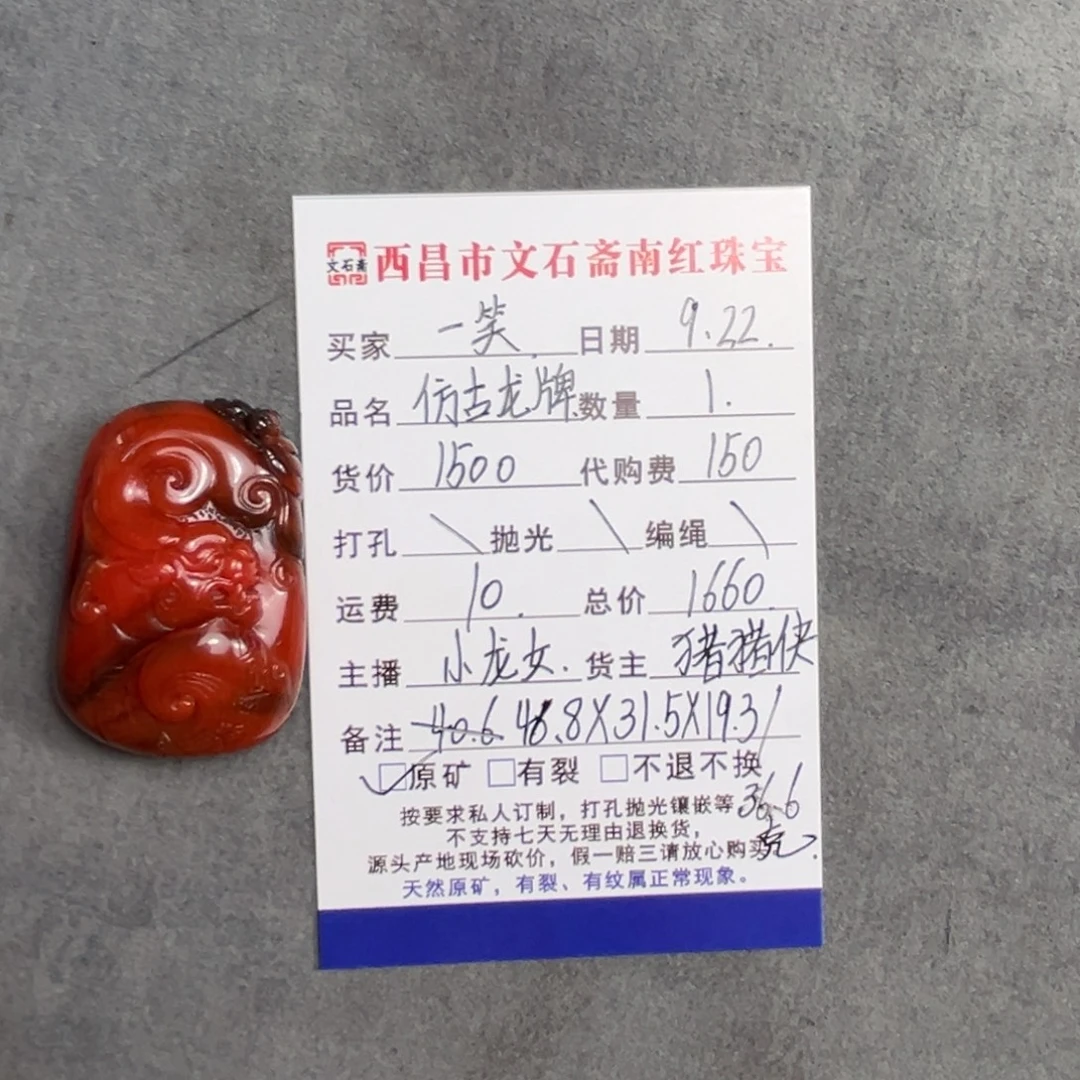 文石斋 西昌市文石斋南红珠宝
买家 一笑. 日期 9.22.
品名 仿古龙牌 数量 1.
货价 1500 代购费 150
打孔 \ 抛光 \ 编绳 \
运费 10. 总价 1660.
主播 小龙女. 货主 猪猪侠
备注 40.6 48.8X31.5X19.3/
☑原矿 □有裂 □不退不换
36.6
按要求私人订制，打孔抛光镶嵌等
不支持七天无理由退换货，
克.
源头产地现场砍价，假一赔三请放心购买
天然原矿，有裂、有纹属正常现象。